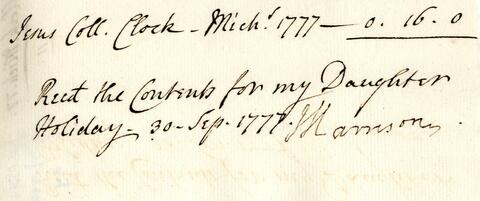 Jesus Coll. Clock - Michs. 1777 - 0. 16. 0
Recd the Contents for my Daughter
Holiday - 30 - Sep. 1777. J Harrison